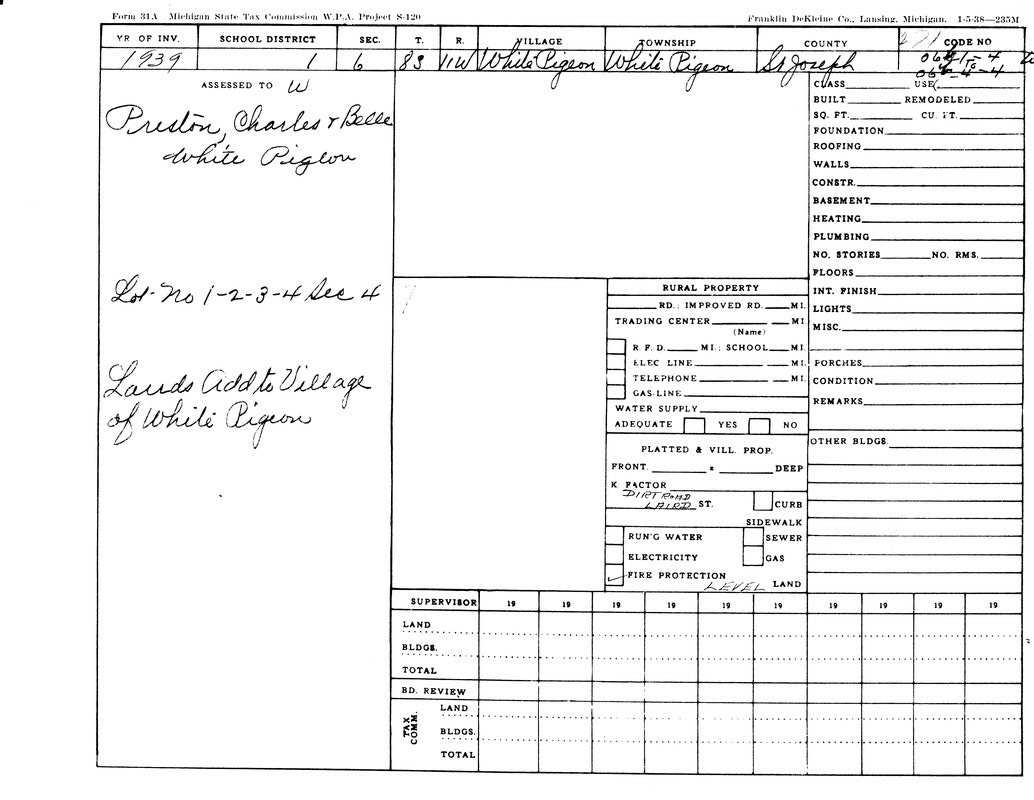 Form 31A Michigan State Tax Commission W.P.A. Project S-120
Franklin DeKleine Co., Lansing, Michigan. 1-5-38—235M
YR OF INV. SCHOOL DISTRICT SEC. T. R. VILLAGE TOWNSHIP COUNTY CODE NO
1939 1 6 8S 11W White Pigeon White Pigeon St Joseph
ASSESSED TO W
Preston, Charles & Belle
White Pigeon
Lot No 1-2-3-4 Sec 4
Lairds Add to Village
of White Pigeon
RURAL PROPERTY
RD.; IMPROVED RD. MI.
TRADING CENTER MI
(Name)
R. F. D. MI.; SCHOOL MI.
ELEC LINE MI.
TELEPHONE MI.
GAS-LINE
WATER SUPPLY
ADEQUATE YES NO
PLATTED & VILL. PROP.
FRONT. x DEEP
K FACTOR
DIRT ROAD
LAIRD ST. CURB
SIDEWALK
RUN'G WATER SEWER
ELECTRICITY GAS
FIRE PROTECTION
LEVEL LAND
CLASS USE
BUILT REMODELED
SQ. FT. CU. FT.
FOUNDATION
ROOFING
WALLS
CONSTR.
BASEMENT
HEATING
PLUMBING
NO. STORIES NO. RMS.
FLOORS
INT. FINISH
LIGHTS
MISC.
PORCHES
CONDITION
REMARKS
OTHER BLDGS.
SUPERVISOR 19 19 19 19 19 19 19 19 19 19
LAND
BLDGS.
TOTAL
BD. REVIEW
TAX COMM.
LAND
BLDGS.
TOTAL